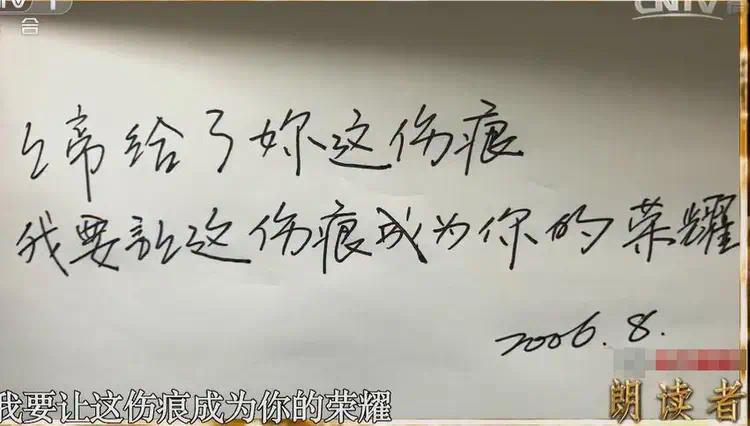 CNTV
台
上帝给了妳这伤痕
我要让这伤痕成为你的荣耀
2006.8.
我要让这伤痕成为你的荣耀
朗读者